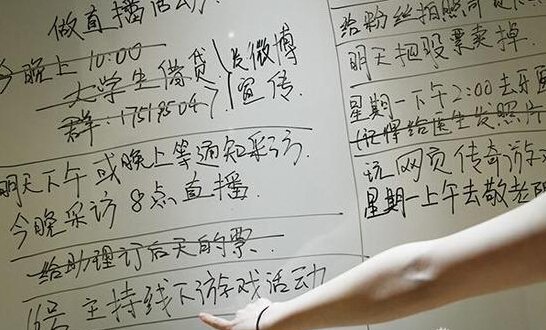 做直播活动
今晚上10:00
大学生借贷
群:17519504
发微博
宣传.
明天下午或晚上等通知采访.
今晚采访8点直播
给助理订后天的票.
16号 主持线下游戏活动
给粉丝拍照
明天把股票卖掉.
星期一下午2:00去
(记得给医生发照片
玩网页传奇游
星期一上午去敬老